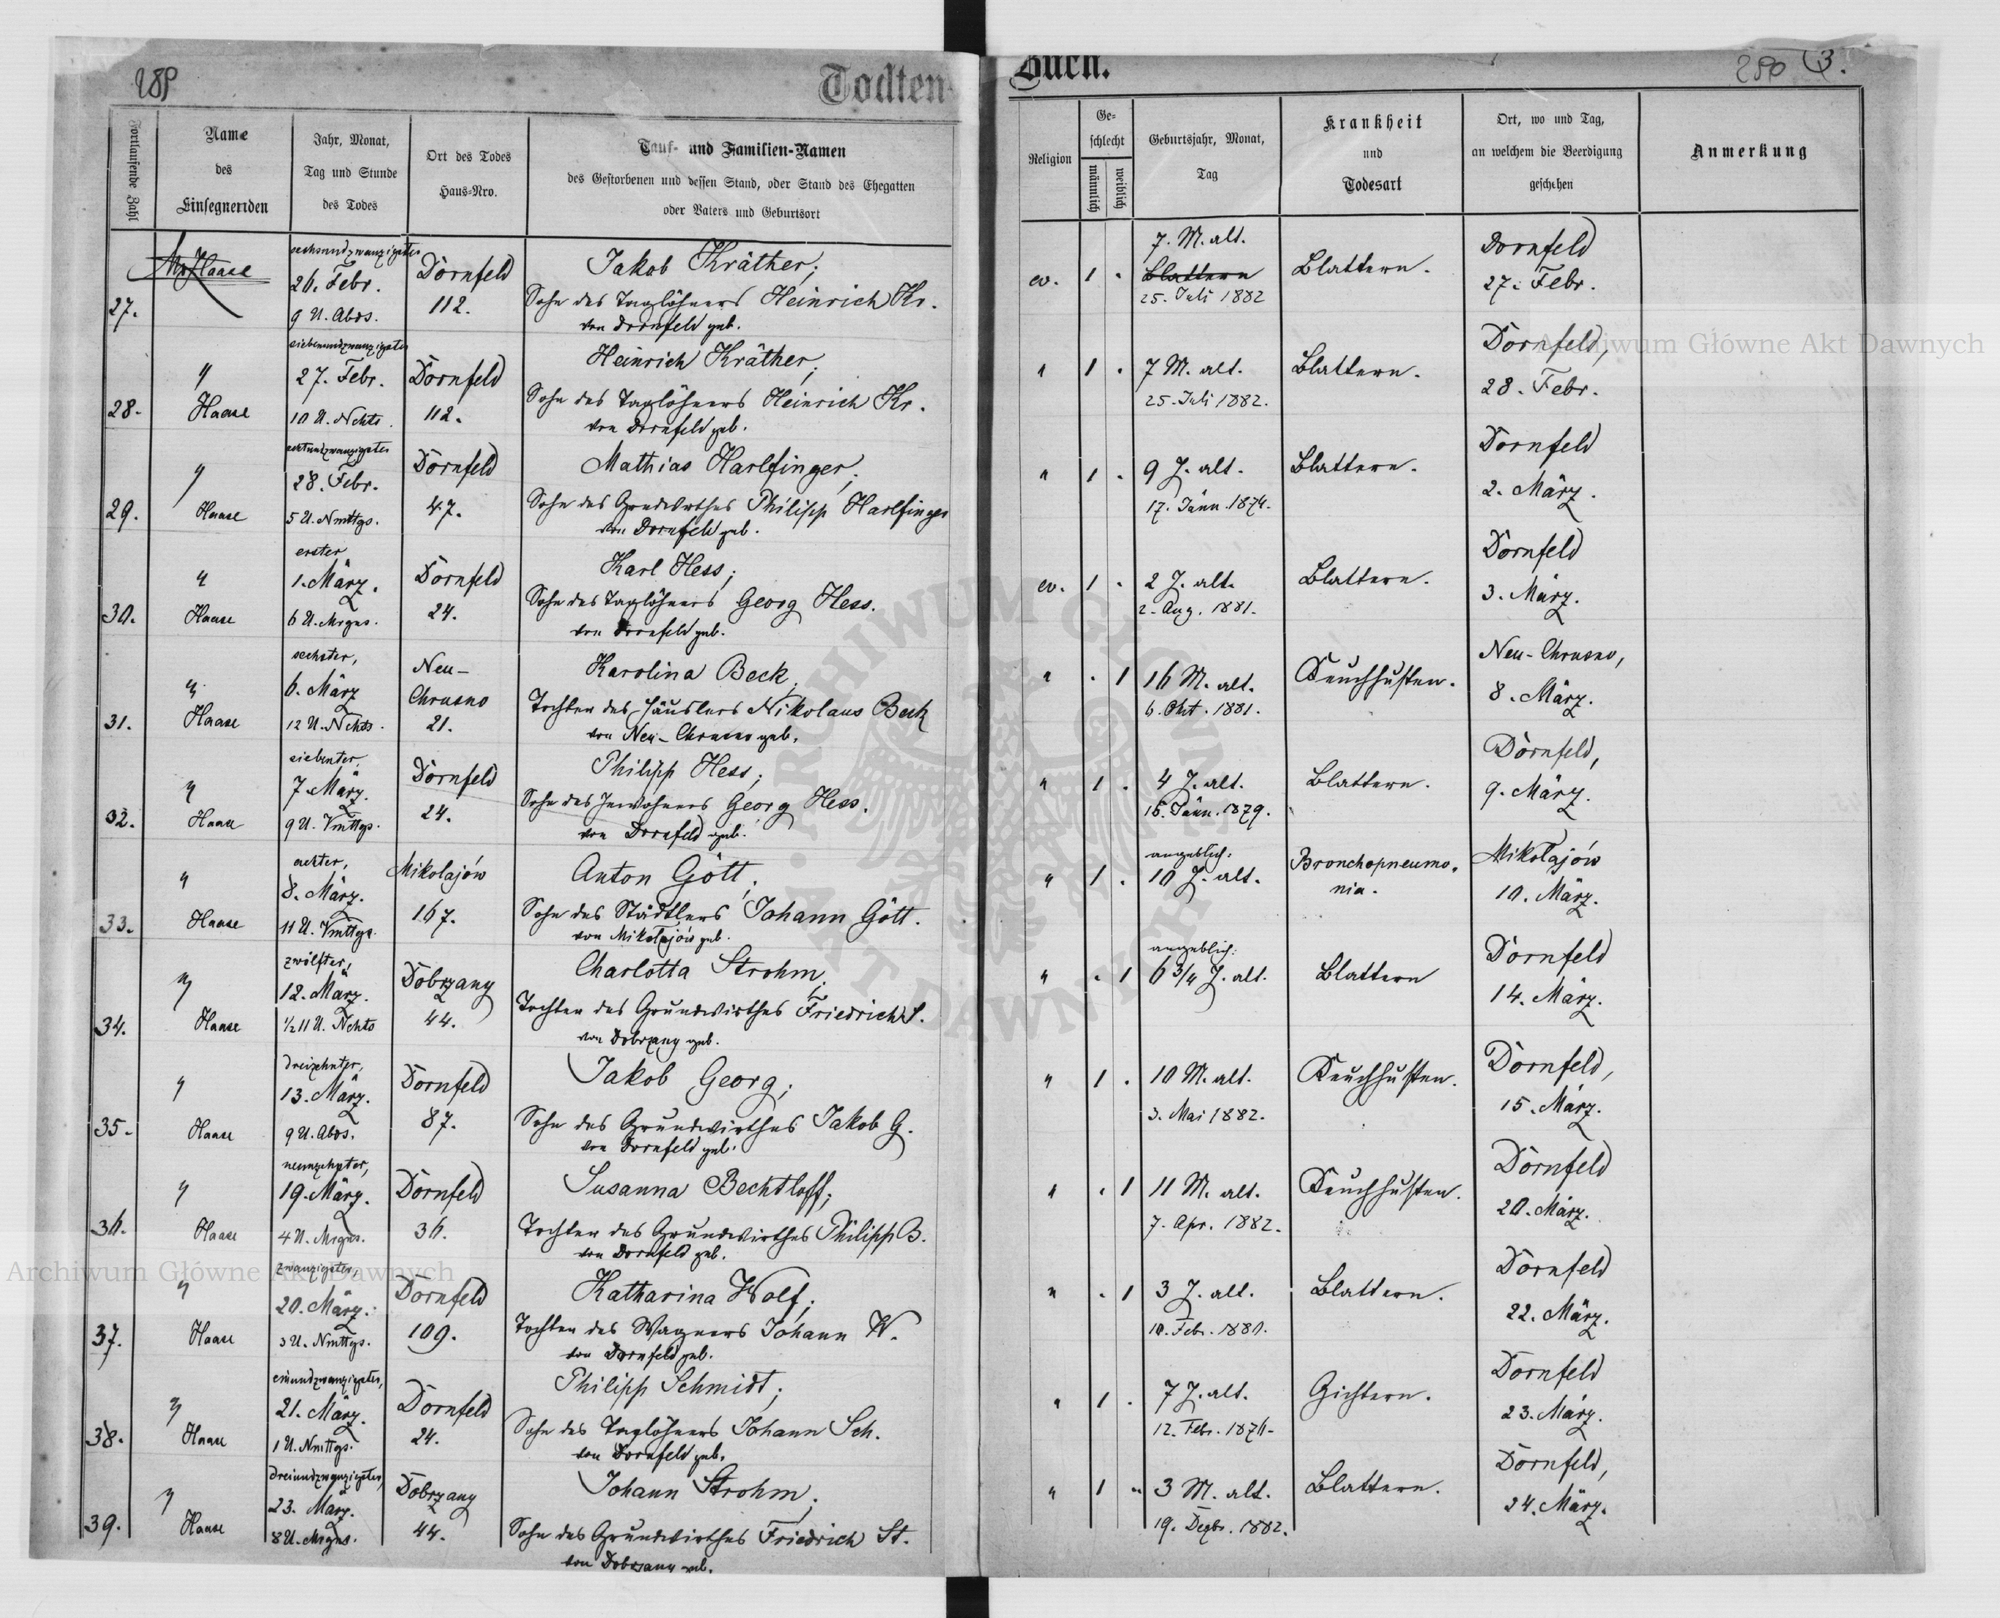 289
Todten-
Buch.
250 3.
Fortlaufende Zahl
Name
des
Einsegnenden
Jahr, Monat,
Tag und Stunde
des Todes
Ort des Todes
Haus-Nro.
Tauf- und Familien-Namen
des Gestorbenen und dessen Stand, oder Stand des Ehegatten
oder Vaters und Geburtsort
Religion
Ge-
schlecht
männlich
weiblich
Geburtsjahr, Monat,
Tag
Krankheit
und
Todesart
Ort, wo und Tag,
an welchem die Beerdigung
geschehen
Anmerkung
27.
Haase
sechsundzwanzigster
26. Febr.
9 U. Abds.
Dornfeld
112.
Jakob Kräther;
Sohn des Taglöhners Heinrich Kr.
von Dornfeld geb.
ev. 1 .
7. M. alt.
Blattern
25. Juli 1882
Blattern.
Dornfeld
27. Febr.
28.
"
Haase
siebenundzwanzigster
27. Febr.
10 U. Nchts.
Dornfeld
112.
Heinrich Kräther;
Sohn des Taglöhners Heinrich Kr.
von Dornfeld geb.
" 1 .
7 M. alt.
25. Juli 1882.
Blattern.
Dornfeld,
28. Febr.
29.
"
Haase
achtundzwanzigster
28. Febr.
5 U. Nmttgs.
Dornfeld
47.
Mathias Harlfinger;
Sohn des Grundwirthes Philipp Harlfinger
von Dornfeld geb.
" 1 .
9 J. alt.
17. Jänn. 1874.
Blattern.
Dornfeld
2. März.
30.
"
Haase
erster
1. März.
6 U. Mrgns.
Dornfeld
24.
Karl Hess;
Sohn des Taglöhners Georg Hess.
von Dornfeld geb.
ev. 1 .
2 J. alt.
2. Aug. 1881.
Blattern.
Dornfeld
3. März.
31.
"
Haase
sechster,
6. März
12 U. Nchts.
Neu-
Chrusno
21.
Karolina Beck,
Tochter des Häuslers Nikolaus Beck
von Neu-Chrusno geb.
" . 1
16 M. alt.
6. Okt. 1881.
Keuchhusten.
Neu-Chrusno,
8. März.
32.
"
Haase
siebenter,
7. März.
9 U. Vmttgs.
Dornfeld
24.
Philipp Hess;
Sohn des Inwohners Georg Hess.
von Dornfeld geb.
" 1 .
4 J. alt.
15. Jänn. 1879.
Blattern.
Dornfeld,
9. März.
33.
"
Haase
achter,
8. März.
11 U. Vmttgs.
Mikolajów
167.
Anton Gött,
Sohn des Städtlers Johann Gött.
von Mikołajów geb.
" 1 .
angeblich:
10 J. alt.
Bronchopneumo-
nia.
Mikołajów
10. März.
34.
"
Haase
zwölfter,
12. März.
1/2 11 U. Nchts
Dobrzany
44.
Charlotta Strohm,
Tochter des Grundwirthes Friedrich S.
von Dobrzany geb.
" . 1
angeblich:
6 3/4 J. alt.
Blattern
Dornfeld
14. März.
35.
"
Haase
dreizehnter,
13. März.
9 U. Abds.
Dornfeld
87.
Jakob Georg;
Sohn des Grundwirthes Jakob G.
von Dornfeld geb.
" 1 .
10 M. alt.
3. Mai 1882.
Keuchhusten.
Dornfeld,
15. März.
36.
"
Haase
neunzehnter,
19. März.
4 U. Mrgns.
Dornfeld
36.
Susanna Bechtloff;
Tochter des Grundwirthes Philipp B.
von Dornfeld geb.
" . 1
11 M. alt.
7. Apr. 1882.
Keuchhusten.
Dornfeld
20. März.
37.
"
Haase
zwanzigster,
20. März.
3 U. Nmttgs.
Dornfeld
109.
Katharina Wolf;
Tochter des Wagners Johann W.
von Dornfeld geb.
" . 1
3 J. alt.
10. Febr. 1880.
Blattern.
Dornfeld
22. März.
38.
"
Haase
einundzwanzigster,
21. März.
1 U. Nmttgs.
Dornfeld
24.
Philipp Schmidt;
Sohn des Taglöhners Johann Sch.
von Dornfeld geb.
" 1 .
7 J. alt.
12. Febr. 1876.
Gichtern.
Dornfeld
23. März.
39.
"
Haase
dreiundzwanzigster,
23. März.
8 U. Mrgns.
Dobrzany
44.
Johann Strohm;
Sohn des Grundwirthes Friedrich St.
von Dobrzany geb.
" 1 "
3 M. alt.
19. Dezbr. 1882.
Blattern.
Dornfeld,
24. März.
Archiwum Główne Akt Dawnych
Archiwum Główne Akt Dawnych
ARCHIWUM GŁÓWNE AKT DAWNYCH